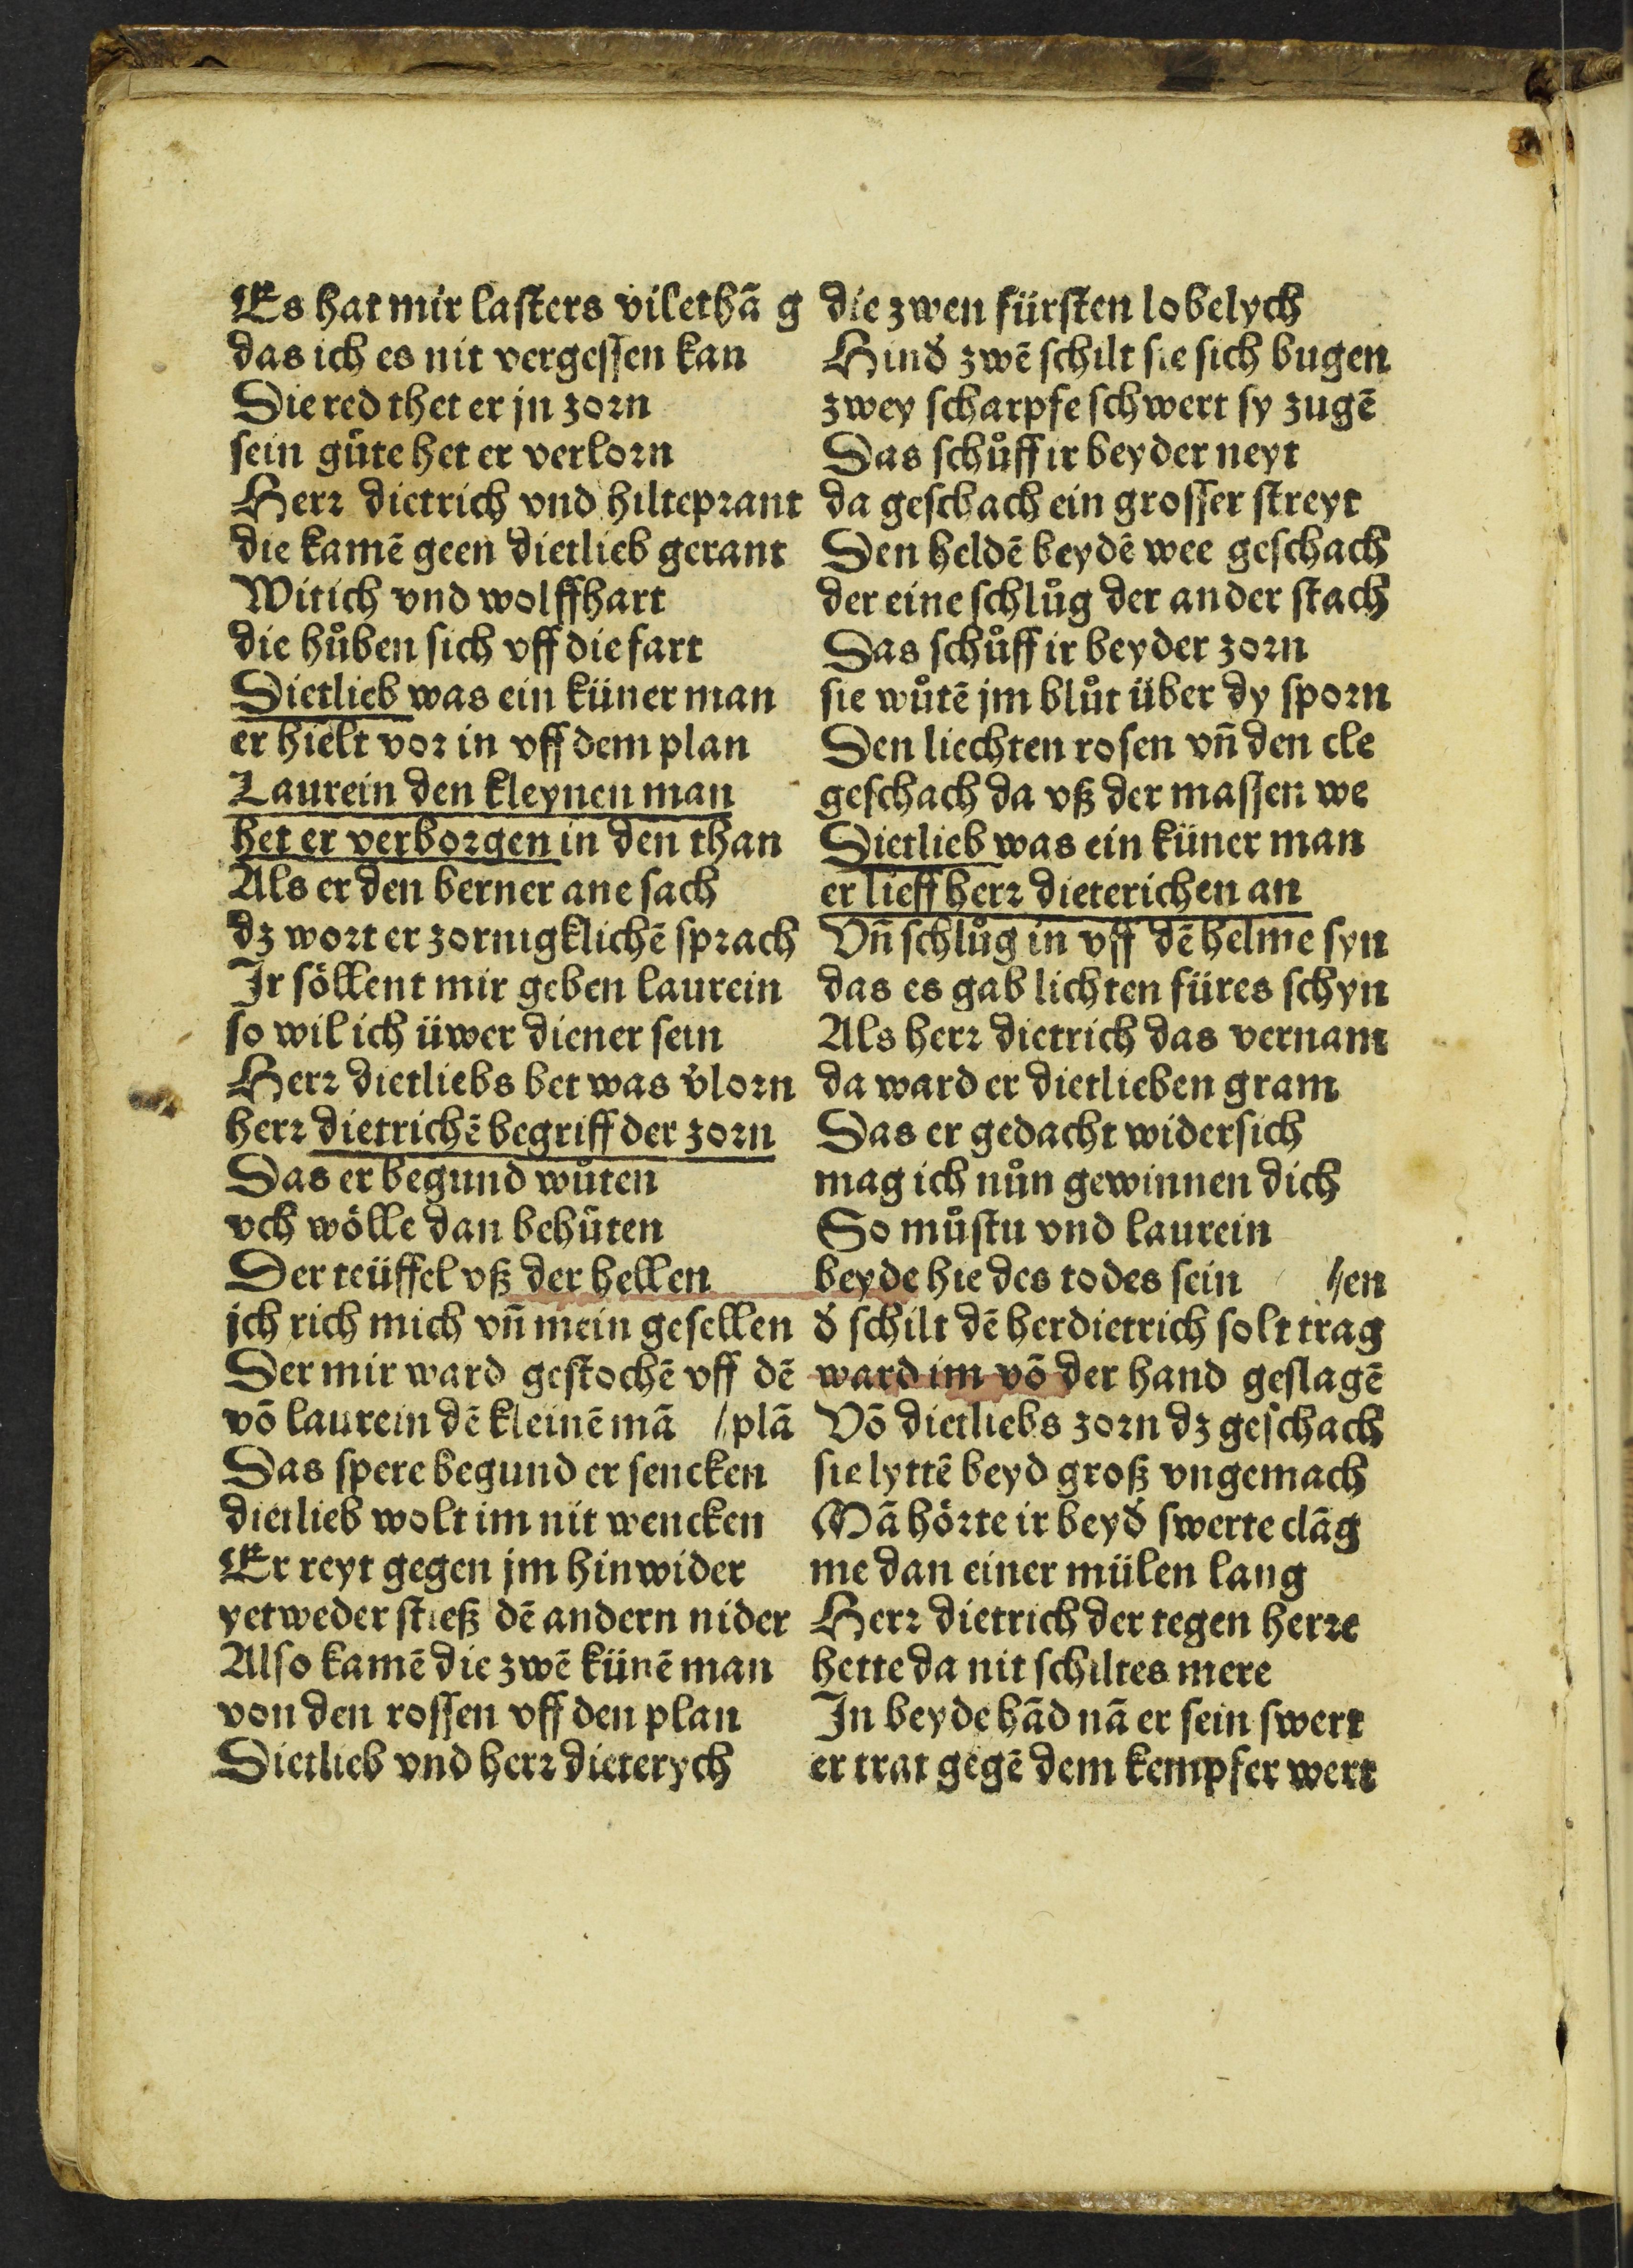 Es hat mir lasters vilethã g
das ich es nit vergessen kan
Die red thet er jn zorn
sein güte het er verlorn
Herr dietrich vnd hilteprant
die kamẽ geen dietlieb gerant
Witich vnd wolffhart
die hůben sich vff die fart
Dietlieb was ein küner man
er hielt vor in vff dem plan
Laurein den kleynen man
het er verborgen in den than
Als er den berner ane sach
dz wort er zornigklichẽ sprach
Ir söllent mir geben laurein
so wil ich üwer diener sein
Herr dietliebs bet was v̾lorn
herr dietrichẽ begriff der zorn
Das er begund wůten
vch wölle dan behüten
Der teüffel vß der hellen
ich rich mich vñ mein gesellen
Der mir ward gestochẽ vff dẽ
võ laurein dẽ kleinẽ mã //plã
Das spere begund er sencken
dietlieb wolt im nit wencken
Er reyt gegen jm hinwider
yetweder stieß dẽ andern nider
Also kamẽ die zwẽ künẽ man
von den rossen vff den plan
Dietlieb vnd herr dieterych
die zwen fürsten lobelych
Hind̾ zwẽ schilt sie sich bugen
zwey scharpfe schwert sy zugẽ
Das schůff ir beyder neyt
da geschach ein grosser streyt
Den heldẽ beydẽ wee geschach
der eine schlůg der ander stach
Das schůff ir beyder zorn
sie wůtẽ jm blůt über dy sporn
Den liechten rosen vñ den cle
geschach da vß der massen we
Dietlieb was ein küner man
er lieff herr dieterichen an
Vñ schlůg in vff dẽ helme syn
das es gab lichten füres schyn
Als herr dietrich das vernam
da ward er dietlieben gram
Das er gedacht widersich
mag ich nůn gewinnen dich
So můstu vnd laurein
beyde hie des todes sein //en
d̾ schilt dẽ herdietrich solt trag
ward im võ der hand geslagẽ
Võ dietliebs zorn dz geschach
sie lyttẽ beyd groß vngemach
Mã hörte ir beyd̾ swerte clãg
me dan einer mülen lang
Herr dietrich der tegen herre
hette da nit schiltes mere
In beyde hãd nã er sein swert
er trat gegẽ dem kempfer wert